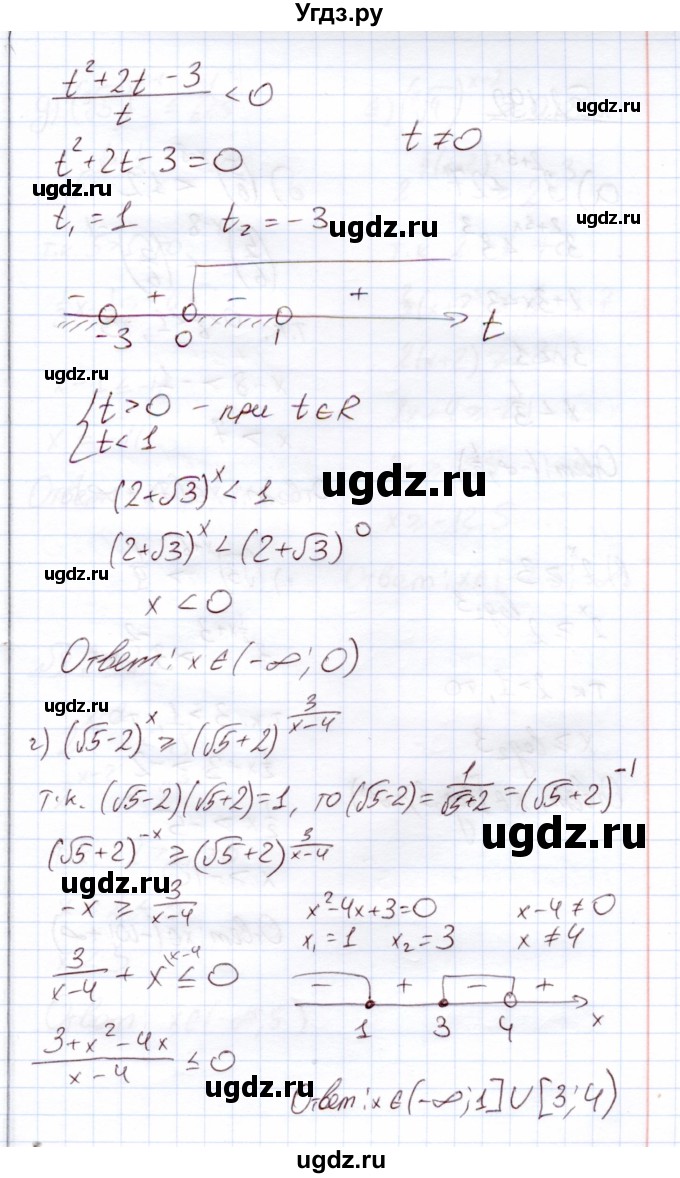 Угдз.ру
(t²+2t-3)/t < 0
ugdz.ru
ugdz.ru
t ≠ 0
t²+2t-3=0
ugdz.ru
ugdz.ru
t₁ = 1 t₂ = -3
ugdz.ru
- + - +
-3 0 1 t
ugdz.ru
{ t > 0 - при t ∈ R
t < 1
ugdz.ru
(2+√3)^x < 1
(2+√3)^x < (2+√3)^0
ugdz.ru
x < 0
Ответ: x ∈ (-∞; 0)
ugdz.ru
г) (√5-2)^x ≥ (√5+2)^(3/(x-4))
т.к. (√5-2)(√5+2)=1, то (√5-2) = 1/(√5+2) = (√5+2)^(-1)
ugdz.ru
(√5+2)^(-x) ≥ (√5+2)^(3/(x-4))
ugdz.ru
-x ≥ 3/(x-4) x²-4x+3=0 x-4 ≠ 0
x₁ = 1 x₂ = 3 x ≠ 4
3/(x-4) + x^(\x-4) ≤ 0
- + - +
1 3 4 x
ugdz.ru
(3+x²-4x)/(x-4) ≤ 0
ugdz.ru
Ответ: x ∈ (-∞; 1] ∪ [3; 4)
ugdz.ru